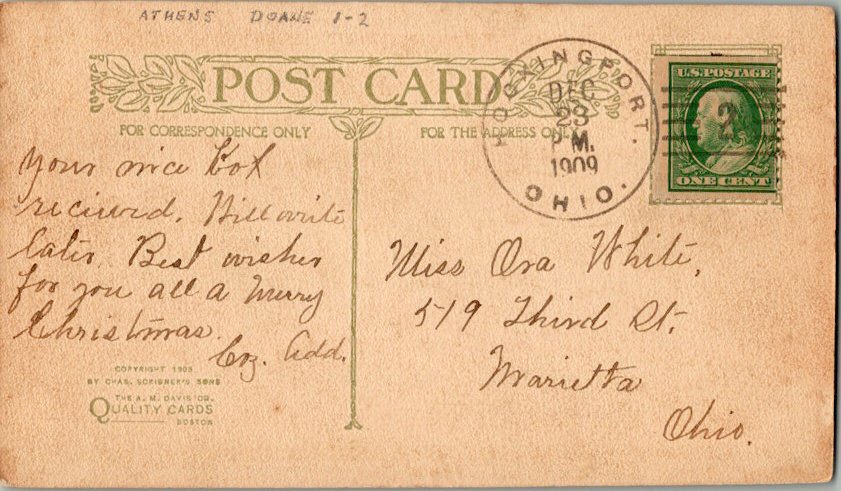 ATHENS DOANE 1-2
POST CARD
FOR CORRESPONDENCE ONLY
FOR THE ADDRESS ONLY
HOCKINGPORT.
DEC
23
P.M.
1909
OHIO.
U.S. POSTAGE
2
ONE CENT
Your nice box
recieved. Will write
later. Best wishes
for you all a Merry
Christmas.
Coz. Add.
Miss Ora White,
519 Third St.
Marietta
Ohio.
COPYRIGHT 1905
BY CHAS. SCRIBNER'S SONS
THE A. M. DAVIS CO.
QUALITY CARDS
BOSTON